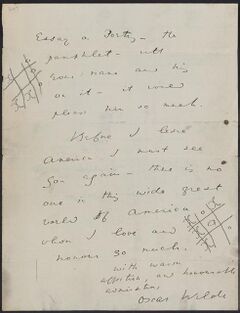 Essay on Poetry – the
pamphlet – with
your name and his
on it – it would
please him so much.
Before I leave
America I must see
you again – there is no
one in this wide great
world of America
whom I love and
honour so much.
with warm
affection, and honourable
admiration,
Oscar Wilde